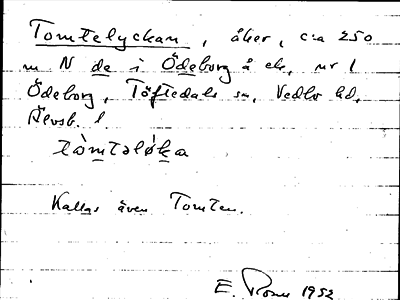 Tomtelyckan, åker, c:a 250
m N de i Ödeborg å ek, nr 1
Ödeborg, Töftedals sn, Vedbo hd,
Älvsb. l.
tòmtəløka
Kallas även Tomten.
E. 1952